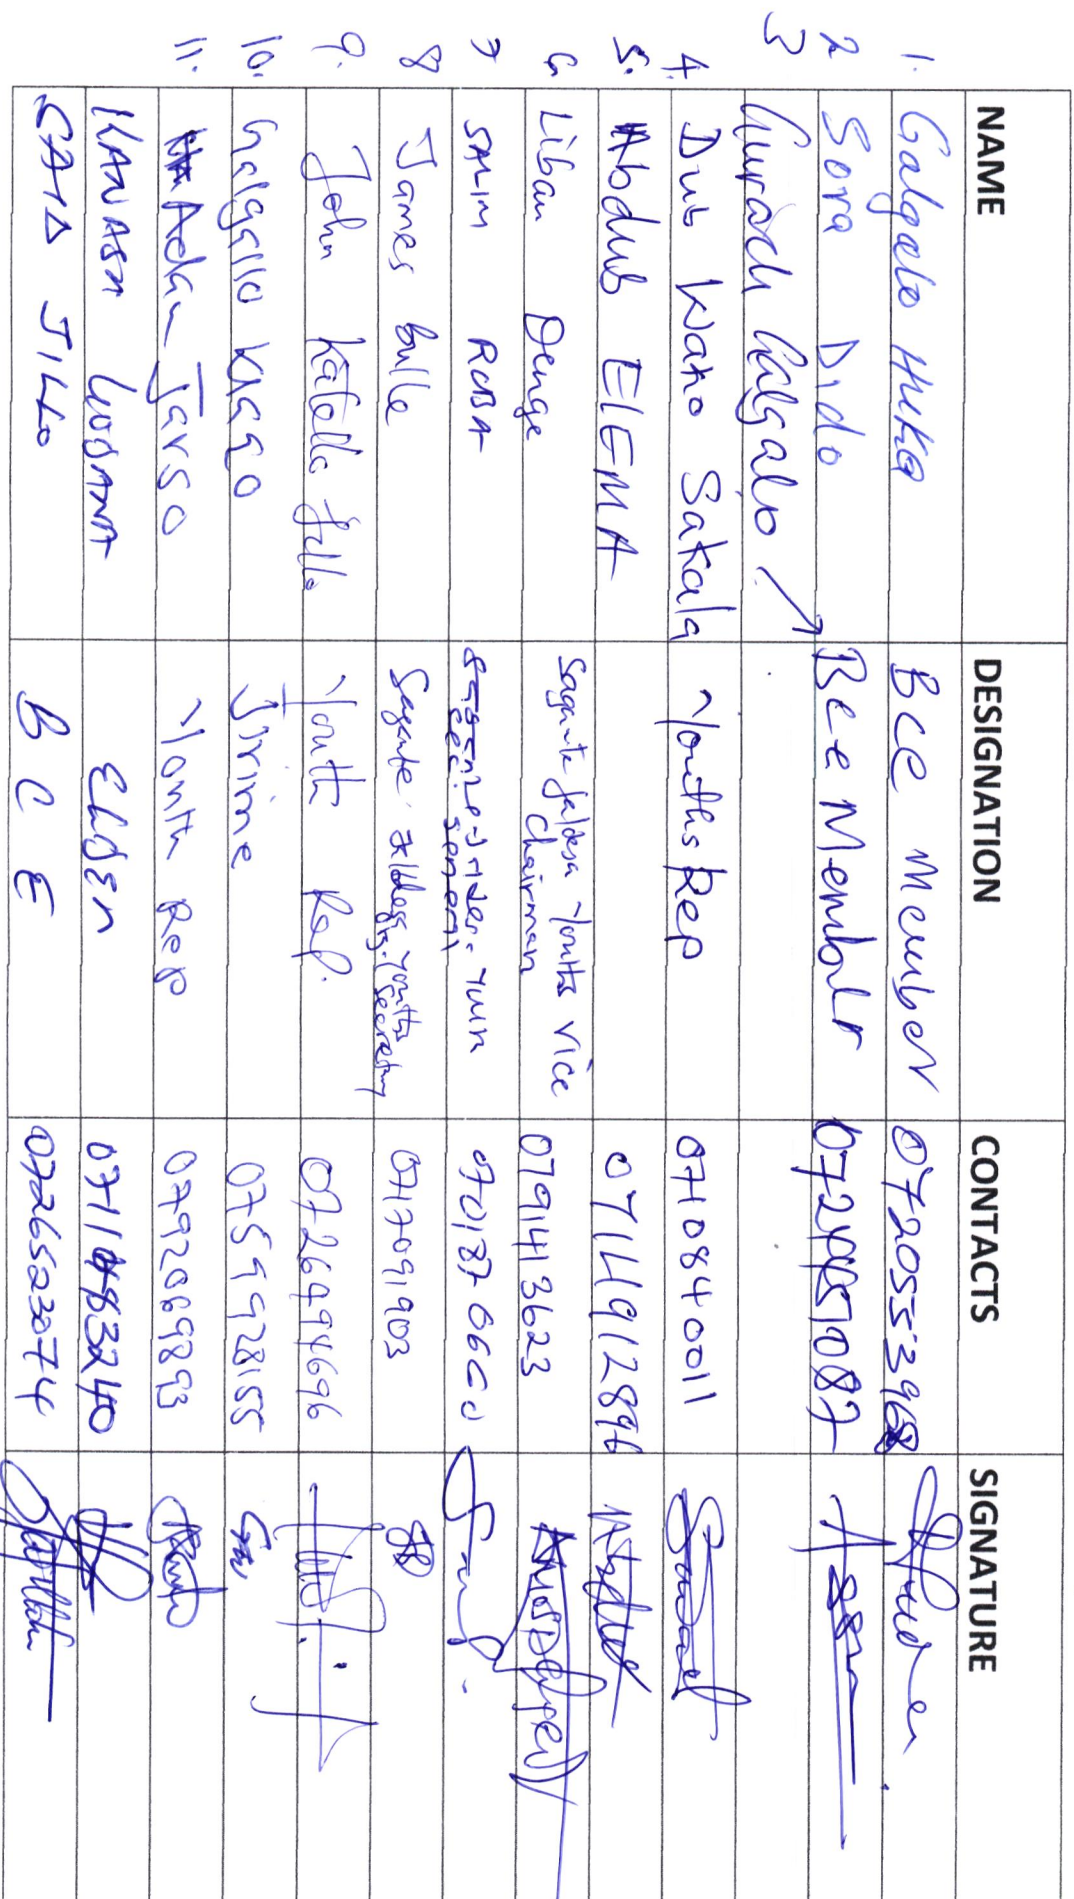 NAME DESIGNATION CONTACTS SIGNATURE
1. Galgalo Huka BCE Member 0720553968
2 Sora Dido Bee Member
3 Galgalo
4. Dub Wako Sakala Youths Rep 0710840011
5. Abdub ELEMA 0714912896
6. Liban Denge Sagante Jaldesa Youths vice
Chairman 0791413623
7 SALIM ROBA
8 James Bulle Sagante Jaldesa Youths
secretary 0717091903
9. John Jillo Youth Rep. 0726494696
10. Galgallo Jirime 0759928155
11. Adan Jarso Youth Rep 0792069893
KANASA GODANA Elder 0711483240
SAID JILLO B C E 0726523074